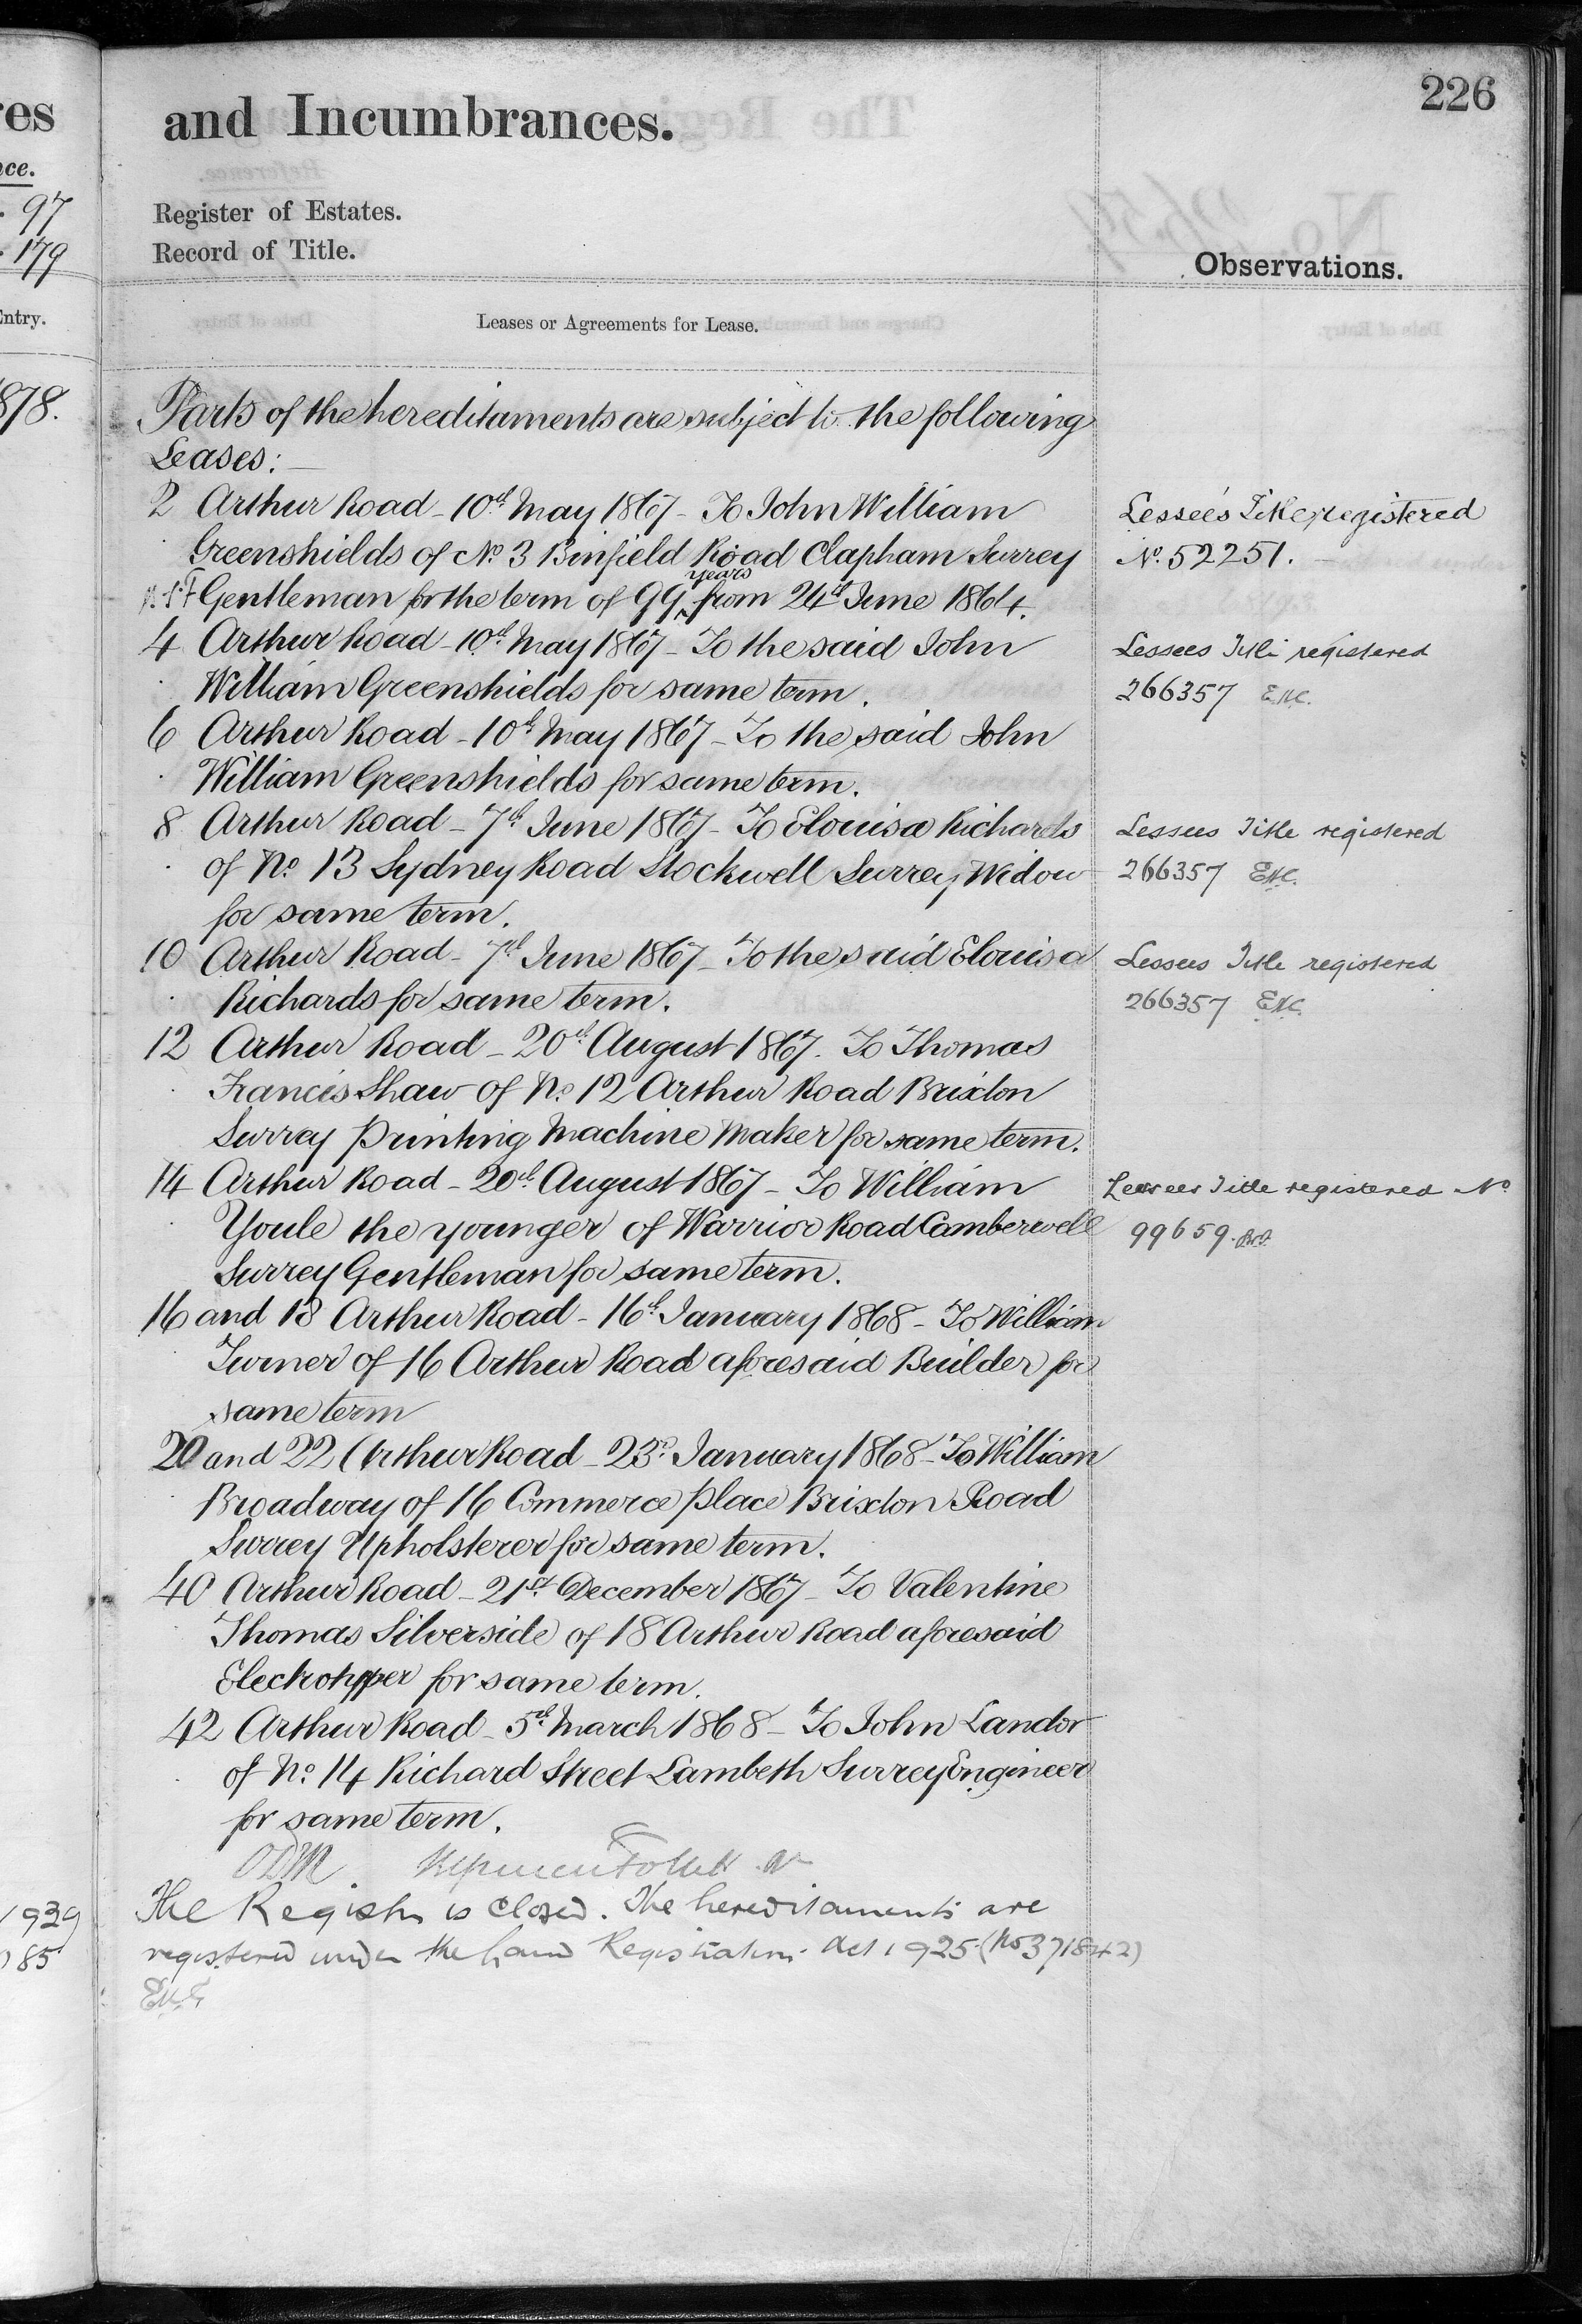 226
res
and Incumbrances.
nce.
97
Register of Estates.
179
Record of Title.
Observations.
Entry.
Leases or Agreements for Lease.
878.
Parts of the hereditaments are subject to the following
Leases:—
2 Arthur Road - 10th May 1867 - To John William
Greenshields of No. 3 Binfield Road Clapham Surrey
years
Gentleman for the term of 99 ^ from 24th June 1864.
Lessee's Title registered
No. 52251.
4 Arthur Road - 10th May 1867 - To the said John
William Greenshields for same term.
Lessees Title registered
266357
6 Arthur Road - 10th May 1867 - To the said John
William Greenshields for same term.
8 Arthur Road - 7th June 1867 - To Elouisa Richards
of No. 13 Sydney Road Stockwell Surrey Widow
for same term.
Lessees Title registered
266357
10 Arthur Road - 7th June 1867 - To the said Elouisa
Richards for same term.
Lessees Title registered
266357
12 Arthur Road - 20th August 1867. To Thomas
Francis Shaw of No. 12 Arthur Road Brixton
Surrey Printing Machine Maker for same term.
14 Arthur Road - 20th August 1867 - To William
Youle the younger of Warrior Road Camberwell
Surrey Gentleman for same term.
Lessees Title registered No
99659.
16 and 18 Arthur Road - 16th January 1868 - To William
Turner of 16 Arthur Road aforesaid Builder for
same term
20 and 22 Arthur Road - 23rd January 1868 - To William
Broadway of 16 Commerce Place Brixton Road
Surrey Upholsterer for same term.
40 Arthur Road - 21st December 1867 - To Valentine
Thomas Silverside of 18 Arthur Road aforesaid
Electrotyper for same term.
42 Arthur Road - 5th March 1868 - To John Landor
of No. 14 Richard Street Lambeth Surrey Engineer
for same term.
1939
The Register is closed. The hereditaments are
185
registered under the Land Registration Act 1925 (No 371842)